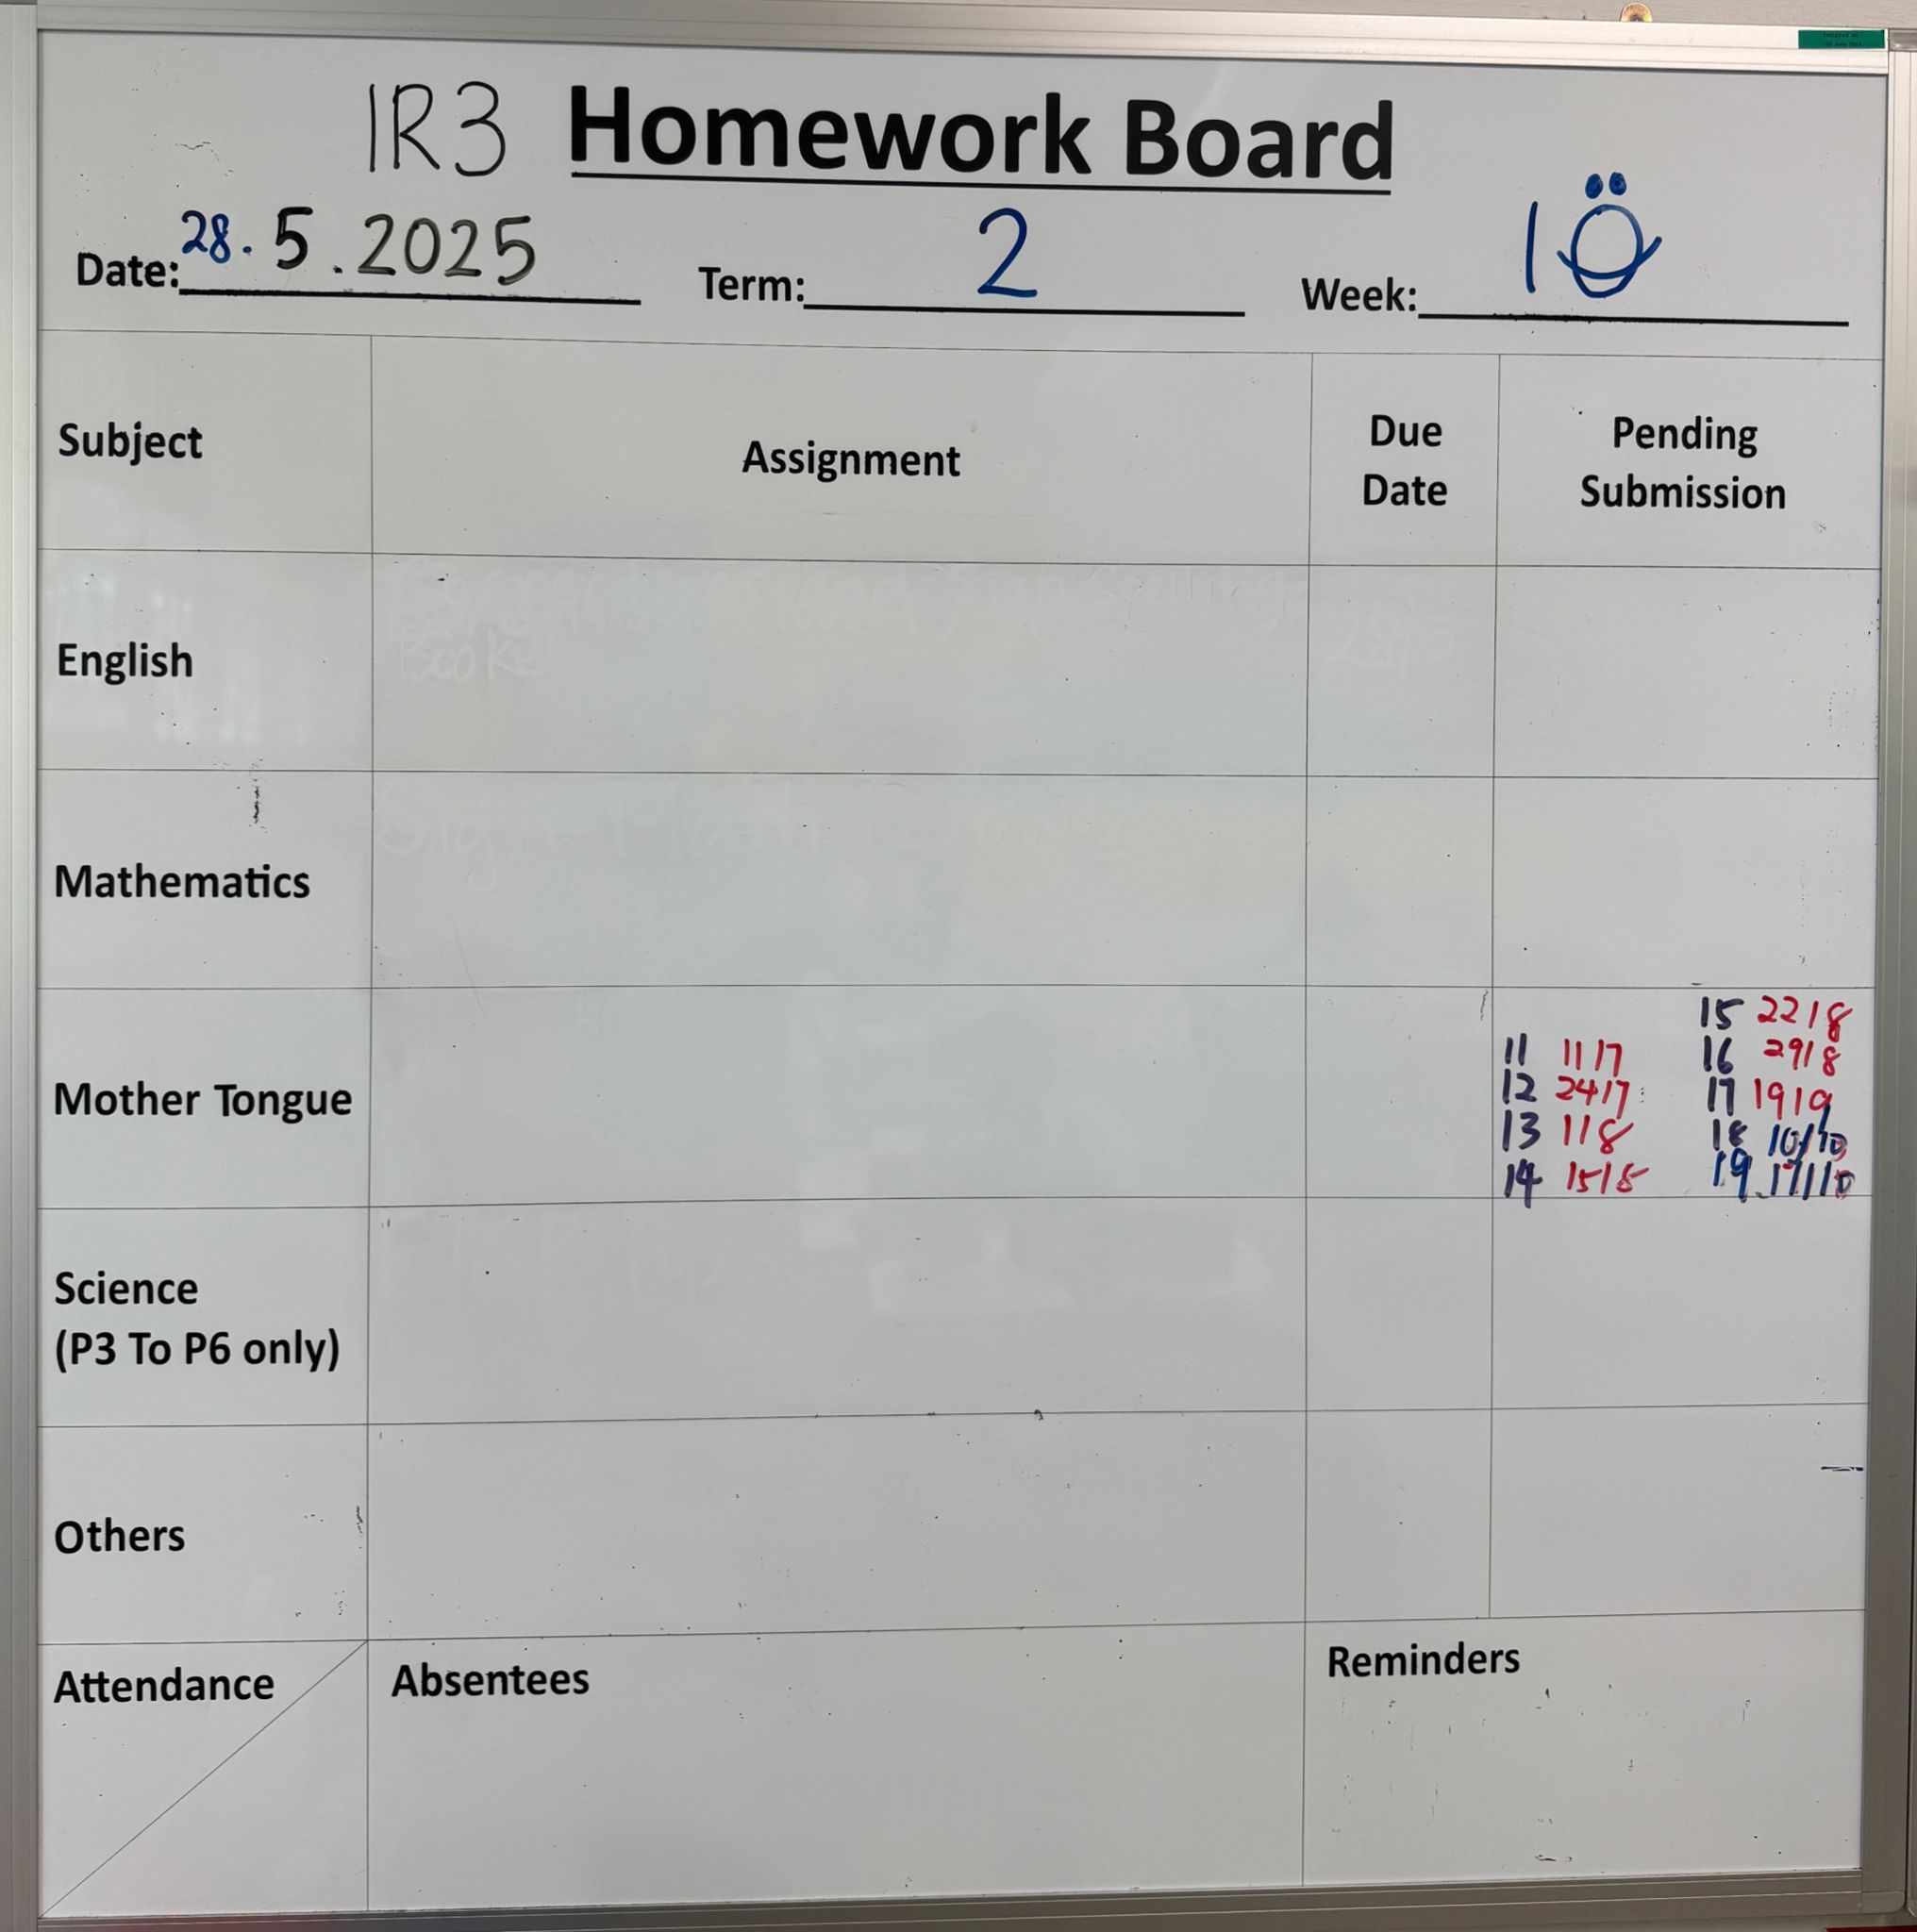 1R3 Homework Board
Date: 28.5.2025 Term: 2 Week: 10
Subject Assignment Due Date Pending Submission
English
Mathematics
Mother Tongue
11 11/7
12 24/7
13 1/8
14 15/8
15 22/8
16 29/8
17 19/9
18 10/10
19 17/10
Science
(P3 To P6 only)
Others
Attendance
Absentees
Reminders